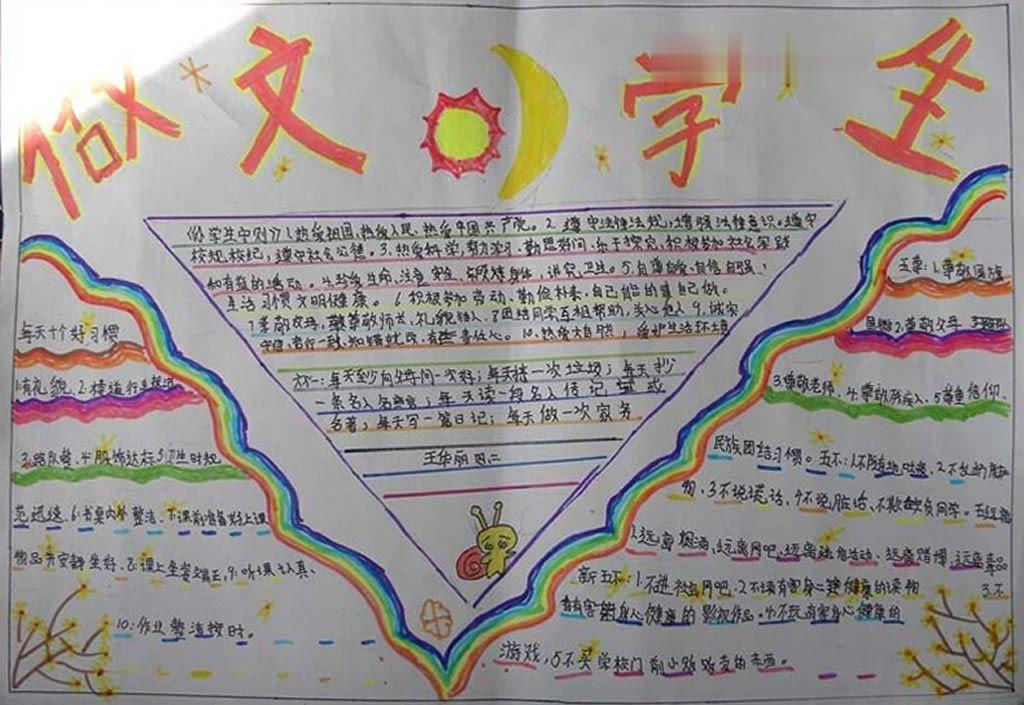 做文学生
《学生守则》1.热爱祖国,热爱人民,热爱中国共产党。2.遵守法律法规,增强法律意识。遵守
校规校纪,遵守社会公德。3.热爱科学,努力学习,勤思好问,乐于探究,积极参加社会实践
和有益的活动。4.珍爱生命,注意安全,锻炼身体,讲究卫生。5.自尊自爱,自信自强,
生活习惯文明健康。6.积极参加劳动,勤俭朴素,自己能的事自己做。
7.孝敬父母,尊敬师长,礼貌待人。8.团结同学,互相帮助,关心他人。9.诚实
守信,言行一致,知错就改,有责任心。10.热爱大自然,爱护生活环境
六一:每天到向父母问一次好;每天捡一次垃圾;每天抄
一条名人名言;每天读一段名人传记或
名著;每天写一篇日记;每天做一次家务
王华丽
每天十个好习惯
1.有礼貌、2.楼道行走
3.路队整、4.服饰达标5.卫生时规
范迅速、6.书桌内外整洁、7.课前准备好上课
物品并安静坐好、8.课上坐姿端正,9.听课认真、
10:作业整洁按时。
五尊:1.尊敬国旗
国徽2.尊敬父母
3.尊敬老师、4.尊敬残疾人、5.尊重信仰、
民族团结习惯。五不:1.不随地吐痰、2.不乱扔脏
物、3.不说谎话、4.不说脏话、不欺负同学,五远离
1.远离烟酒、远离网吧、远离迷信活动、远离赌博、远离毒品
新五不:1.不进社会网吧、2.不读有害身心健康的读物 3.不
看有害身心健康的影视作品、4.不玩有害身心健康的
游戏,5不买学校门前小贩贩卖的东西。